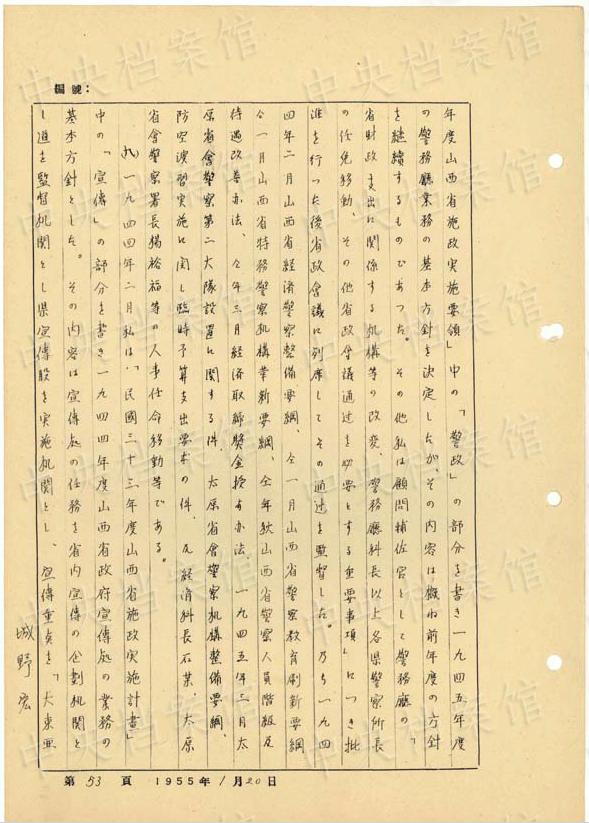 編號：
年度山西省施政実施要領」中の「警政」の部分を書き一九四五年度
の警務廳業務の基本方針を決定したが、その内容は概ね前年度の方針
を継續するものであつた。その他私は顧問補佐官として警務廳の「
省財政支出に関係する机構等の改変、警務廳科長以上各県警察所長
の任免移動、その他省政会議通過を必要とする重要事項」につき批
准を行つた後省政会議に列席してその通过を監督した。乃ち一九四
四年二月山西省経済警察整備要綱、仝一月山西省警察教育刷新要綱
仝一月山西省特務警察机構革新要綱、仝年秋山西省警察人員階級及
待遇改善办法、仝年三月経済取締奨金授与办法、一九四五年三月太
原省會警察第二大隊設置に関する件、太原省會警察机構整備要綱、
防空演習実施に関し臨時予算支出要求の件、及経済科長石某、太原
省會警察署長楊裕福等の人事任命移動等である。
一九四四年二月私は、「民國三十三年度山西省施政実施計畫」
中の「宣傳」の部分を書き一九四四年度山西省政府宣傳処の業務の
基本方針とした。その内容は宣傳処の任務を省内宣傳の企劃机関と
し道を監督机関とし県宣傳股を実施机関とし、宣傳重点を「大東亜
城野宏
第53頁 1955年1月20日
中央档案馆
中央档案馆
中央档案馆
中央档案馆